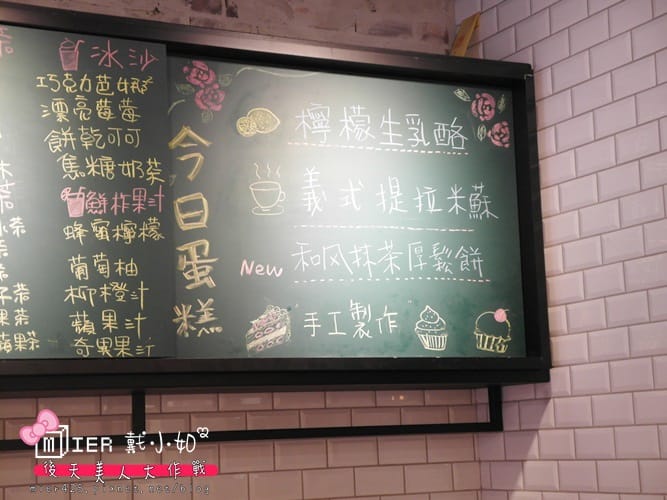 冰沙
巧克力芭娜
漂亮莓莓
餅乾可可
焦糖奶茶
鮮榨果汁
蜂蜜檸檬
葡萄柚
柳橙汁
蘋果汁
奇異果汁
今日蛋糕
檸檬生乳酪
義式提拉米蘇
New 和风抹茶厚鬆餅
手工製作
MIER 戴小如
後天美人大作戰